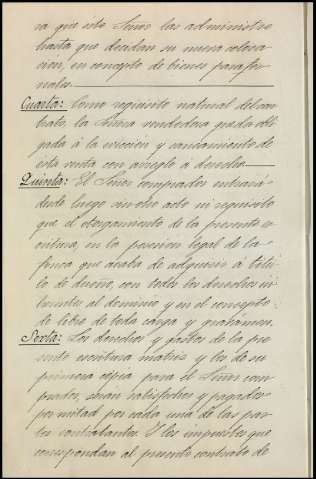 ra que este Señor las administre
hasta que decidan su nueva coloca-
cion, en concepto de bienes parafer-
nales.
Cuarta: Como requisito natural del con-
trato, la Señora vendedora queda obli-
gada á la eviccion y saneamiento de
esta venta con arreglo á derecho.
Quinta: El Señor comprador entrará
desde luego sin otro acto ni requisito
que el otorgamiento de la presente es-
critura, en la posesion legal de la
finca que acaba de adquirir á titu-
lo de dueno, con todos los derechos in-
herentes al dominio y en el concepto
de libre de toda carga y gravámen.
Sexta: Los derechos y gastos de la pre-
sente escritura matriz y los de su
primera cópia para el Señor com-
prador, serán satisfechos y pagados
por mitad por cada una de las par-
tes contratantes. Y los impuestos que
correspondan al presente contrato de